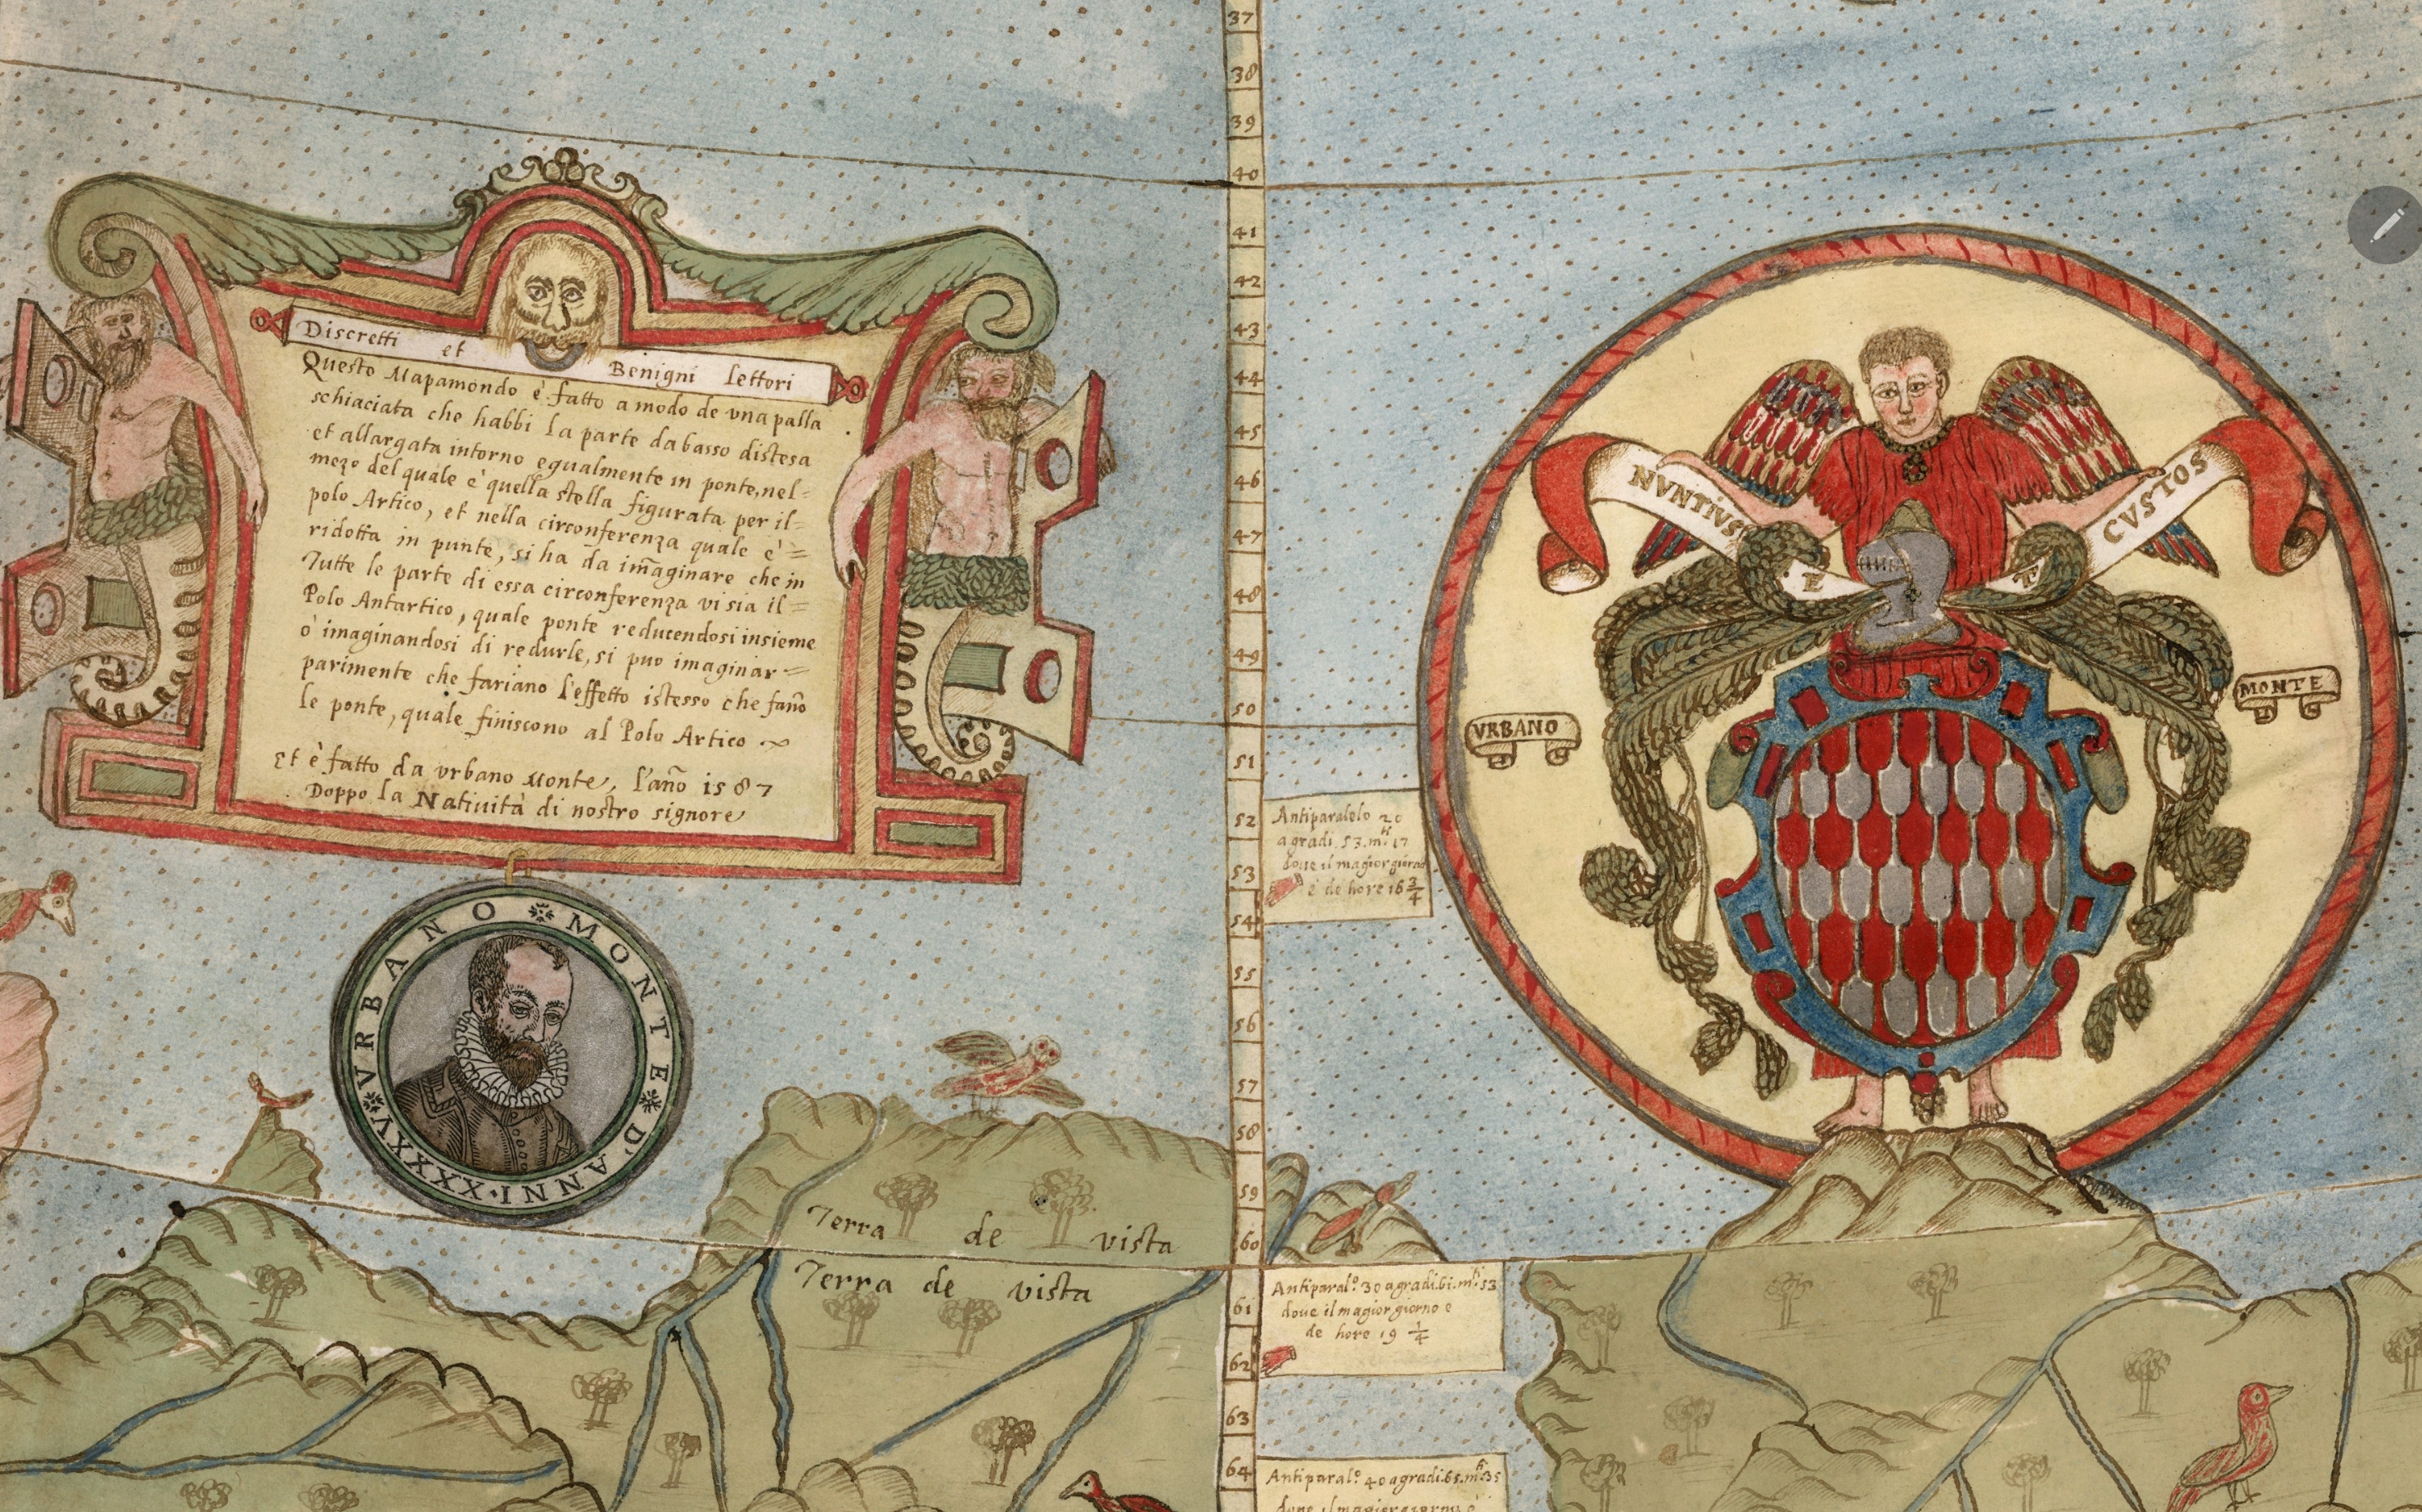 37
38
39
40
41
42
43
44
45
46
47
48
49
50
51
52
53
54
55
56
57
58
59
60
61
62
63
64
Discretti et Benigni lettori
Questo Mapamondo è fatto a modo de vna palla
schiaciata che habbi la parte da basso distesa
et allargata intorno egualmente in ponte, nel=
mezo del quale è quella stella figurata per il=
polo Artico, et nella circonferenza quale è=
ridotta in punte, si ha da im̃aginare che in
Tutte le parte di essa circonferenza vi sia il=
Polo Antartico, quale ponte reducendosi insieme
ò imaginandosi di redurle, si puo imaginar=
parimente che fariano l'effetto istesso che fañо
le ponte, quale finiscono al Polo Artico
et è fatto da vrbano Monte, l'año 1587
Doppo la Natiuità di nostro signore
VRBANO MONTE D'ANNI·XXXXV
NVNTIVS ET CVSTOS
VRBANO
MONTE
Antiparalelo 20
a gradi. 53. m.ti 17
doue il magior giorno
è de hore 16 3/4
Terra de vista
Terra de vista
Antiparal.o 30 a gradi. 61. m.ti 53
doue il magior giorno e
de hore 19 1/4
Antiparal.o 40 a gradi. 65. m.ti 35
doue il magior giorno è